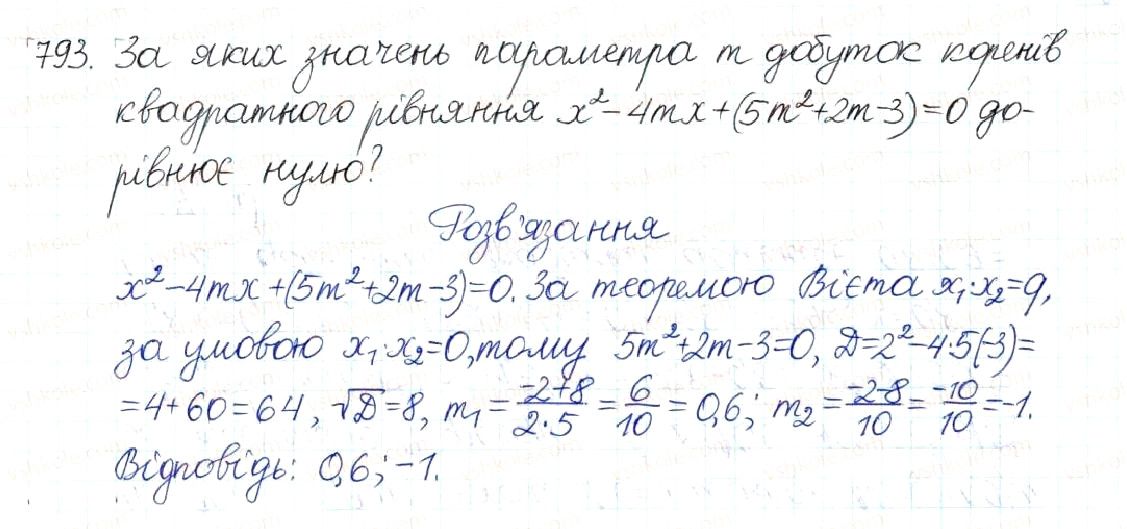 793. За яких значень параметра m добуток коренів
квадратного рівняння x²-4mx+(5m²+2m-3)=0 до-
рівнює нулю?
Розв'язання
x²-4mx+(5m²+2m-3)=0. За теоремою Вієта x₁·x₂=q,
за умовою x₁·x₂=0, тому 5m²+2m-3=0, D=2²-4·5(-3)=
=4+60=64, √D=8, m₁=(-2+8)/(2·5)=6/10=0,6; m₂=(-2-8)/10=-10/10=-1.
Відповідь: 0,6; -1.